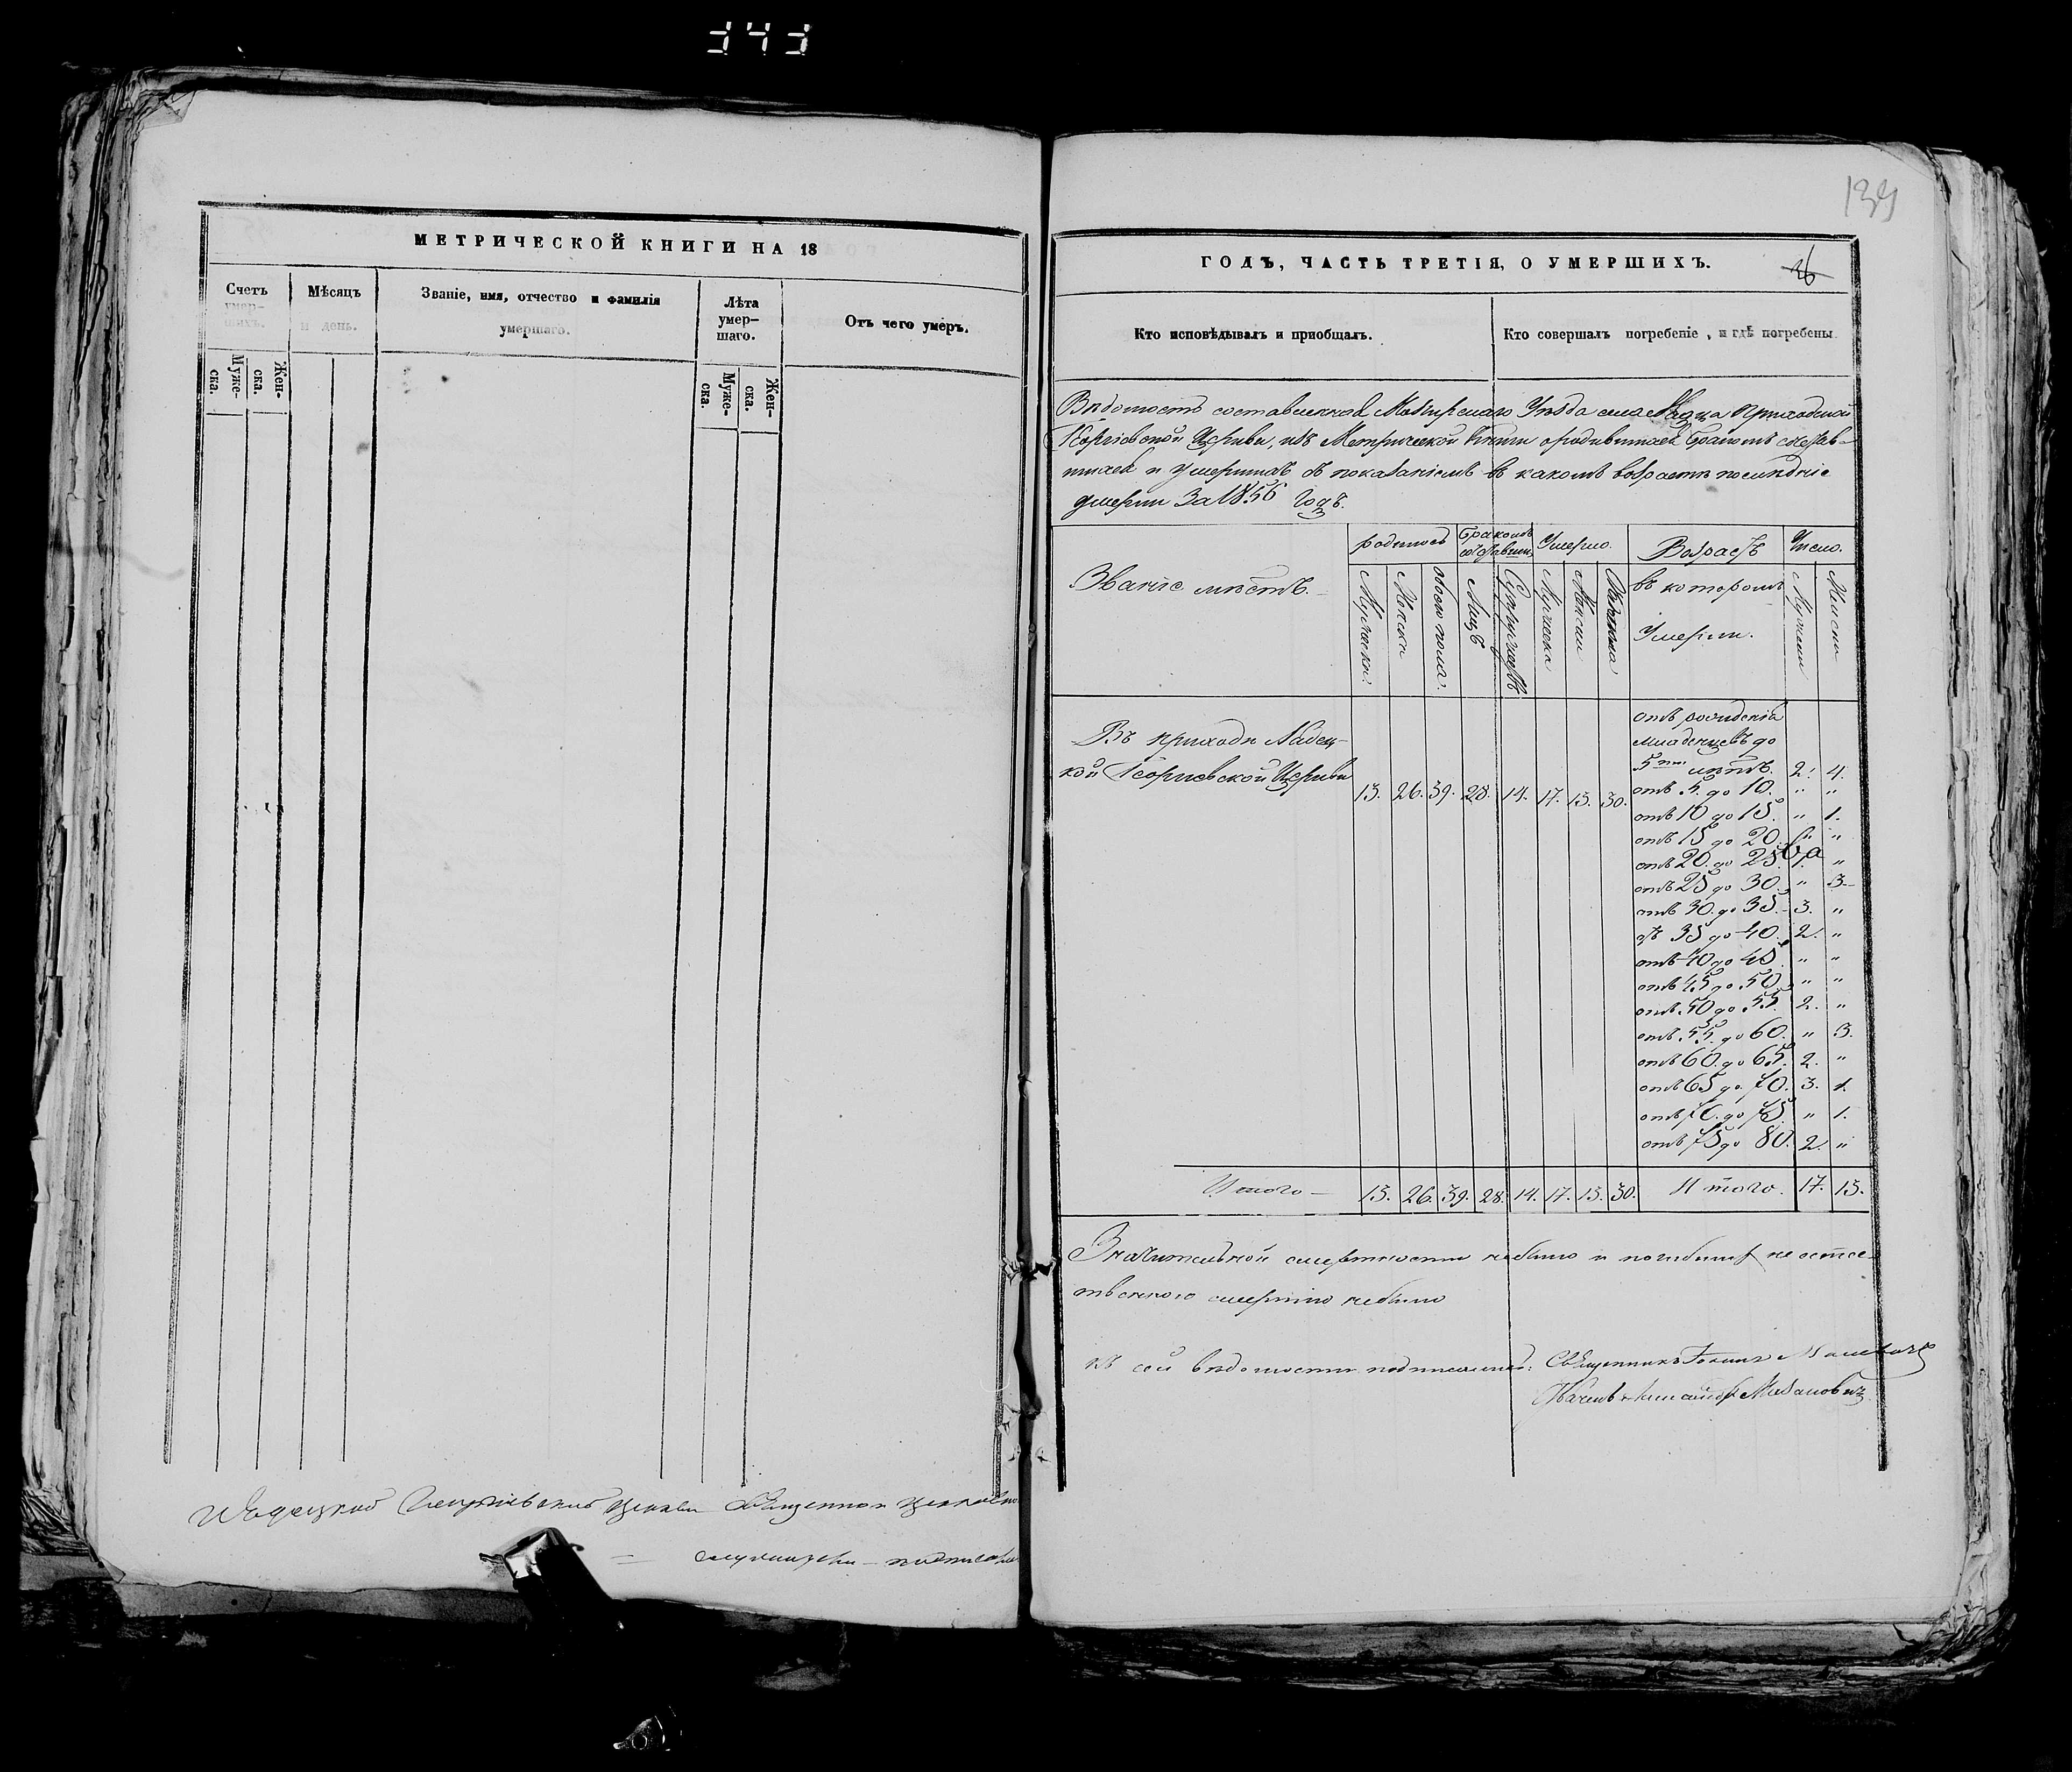 343
МЕТРИЧЕСКОЙ КНИГИ НА 18
Счетъ умер-шихъ.
Мѣсяцъ и день.
Званіе, имя, отчество и фамилія умершаго.
Лѣта умер-шаго.
Отъ чего умеръ.
Муже-ска.
Жен-ска.
Муже-ска.
Жен-ска.
священно и церковно
служители подписа
139
ГОДЪ, ЧАСТЬ ТРЕТІЯ, О УМЕРШИХЪ.
26
Кто исповѣдывалъ и приобщалъ.
Кто совершалъ погребеніе, и гдѣ погребены
Вѣдомость составленная Мозырскаго Уѣзда села приходской
Георгіевской Церкви, изъ Метрической книги
и умершихъ съ показаніемъ въ какомъ возрастѣ послѣдніе
умерли За 1856 Годъ.
Званіе мѣстъ.
родилось
Умерло.
Возрастъ
Число.
Мужеска
Женска
обоего пола.
Лицъ
Мужеска
въ которомъ
Умерли.
Въ приходѣ
кой Георгіевской Церкви
13. 26. 39. 28. 14. 17. 13. 30.
отъ рожденія
младенцевъ до
5ти лѣтъ. 2. 4.
отъ 5. до 10. " "
отъ 10 до 15. " 1.
отъ 15 до 20. "
отъ 20. до 25. "
отъ 25 до 30. " 3
отъ 30. до 35. 3. "
отъ 35 до 40. 2. "
отъ 40 до 45 " "
отъ 45 до 50 " "
отъ 50 до 55. 2. "
отъ 55. до 60. " 3.
отъ 60. до 65. 2. "
отъ 65 до 70. 3. 1.
отъ 70. до 75. " 1.
отъ 75 до 80. 2. "
Итого 13. 26. 39. 28. 14. 17. 13. 30. Итого. 17. 13.
Значительной смертности небыло и не есте-
ственною смертію небыло
къ сей вѣдомости Священникъ